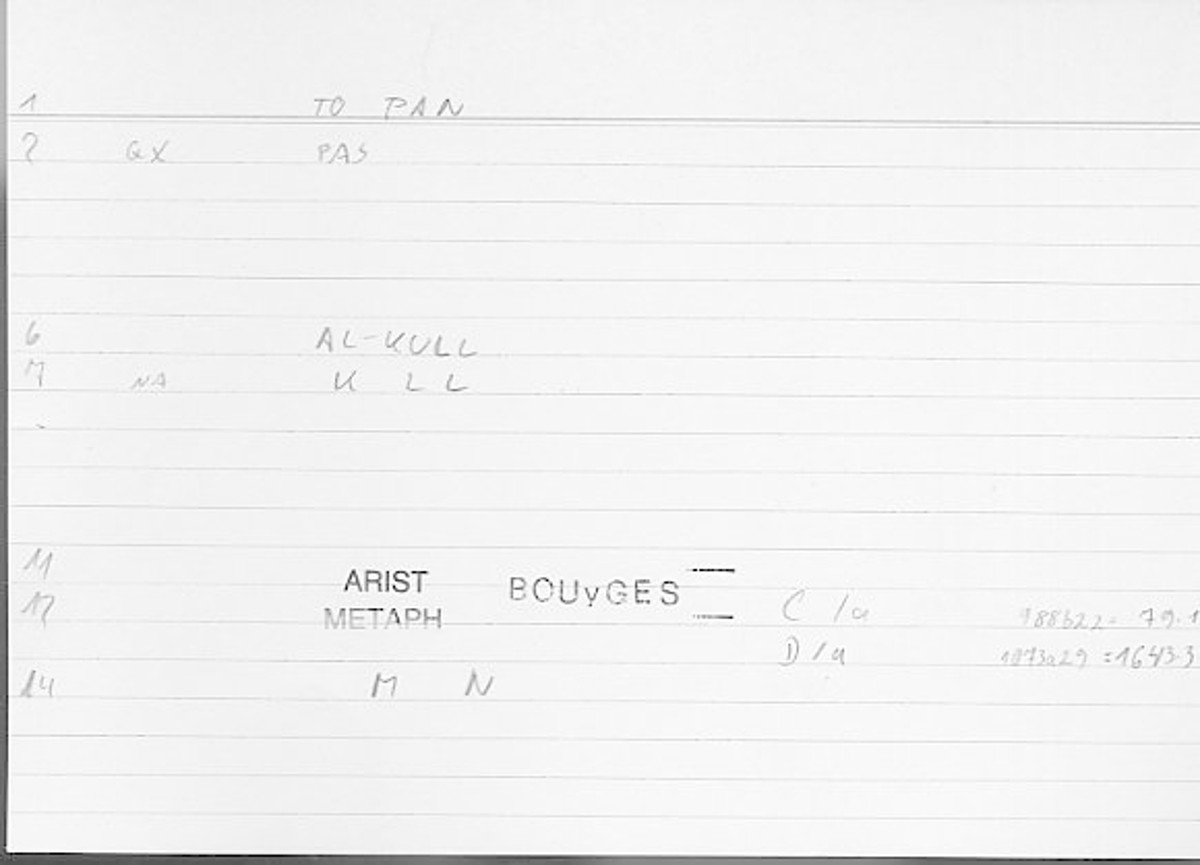 1 TO PAN
2 GX PAS
6 AL-KULL
7 NA K LL
11
ARIST BOUyGES
12 METAPH C /a 988b22 = 79.1
D /a 1073a29 = 1643.3
14 M N